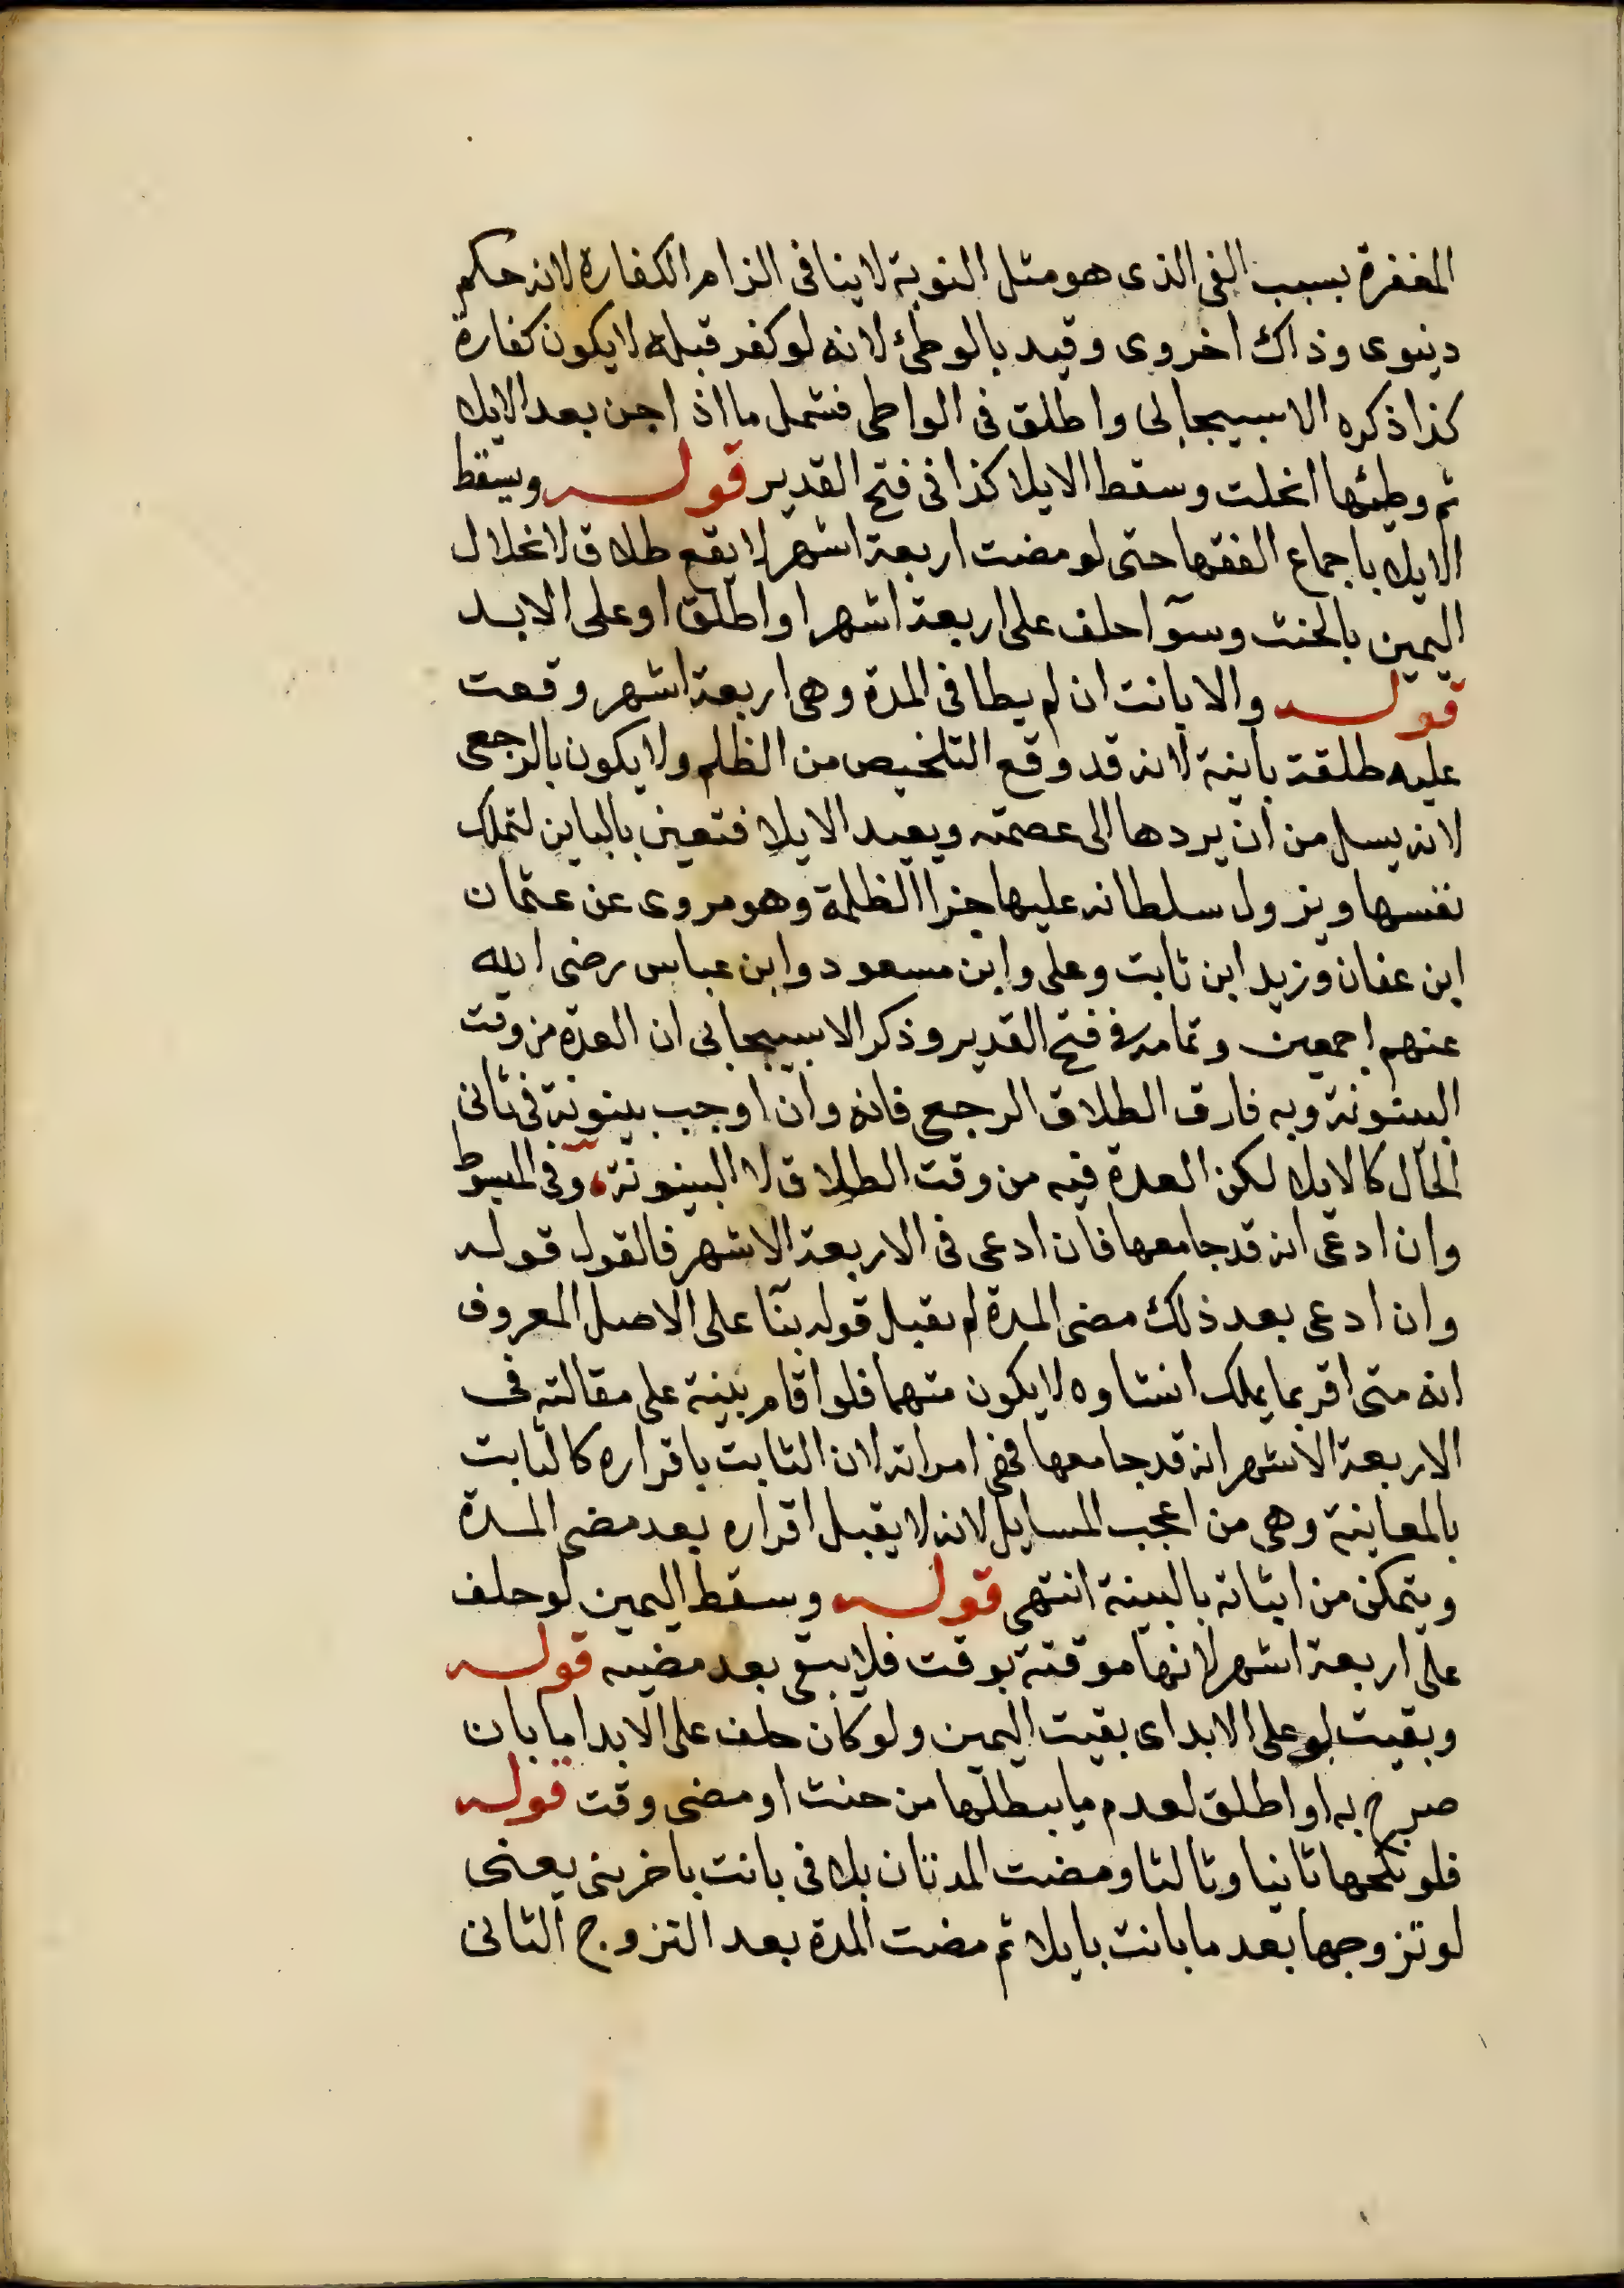 المغفرة بسبب الفى الذى هو مثل التوبة لا ينافى الزام الكفارة لانه حكم
دينوى وذاك اخروى وقيد بالوطئ لانه لو كفر قبله لا يكون كفارة
كذا ذكره الاسبيجابى واطلق فى الواطى فشمل ما اذا جن بعد الايلا
ثم وطيئها انحلت وسقط الايلا كذا فى فتح القدير قوله وسقط
الايلا باجماع الفقها حتى لو مضت اربعة اشهر لا يقع طلاق لانحلال
اليمين بالحنث وسوآ حلف على اربعة اشهر او اطلق او على الابد
قوله والا بانت ان لم يطا فى المدة وهى اربعة اشهر وقعت
عليه طلقة باينة لانه قد وقع التلخيص من الظلم ولا يكون بالرجعى
لانه يسل من ان يردها الى عصمته ويعيد الايلا فتعين بالباين لتملك
نفسها ويزول سلطانه عليها جزا الظلمة وهو مروى عن عثمان
ابن عفان وزيد ابن ثابت وعلى وابن مسعود وابن عباس رضى الله
عنهم اجمعين وتمامه فى فتح القدير وذكر الاسبيجابى ان العدة من وقت
البينونة وبه فارق الطلاق الرجعى فانه وان اوجب بينونة فى ثانى
الحال كالايلا لكن العدة فيه من وقت الطلاق لا البينونة وفى المبسوط
وان ادعى انه قد جامعها فان ادعى فى الاربعة الاشهر فالقول قوله
وان ادعى بعد ذلك مضى المدة لم يقبل قوله بنآ على الاصل المعروف
انه متى اقر بما يملك انشاوه لا يكون متهما فلو اقام بينة على مقالته فى
الاربعة الاشهر انه قد جامعها فهى امراته لان الثابت باقراره كالثابت
بالمعاينة وهى من اعجب المسايل لانه لا يقبل اقراره بعد مضى المدة
ويتمكن من اثباته بالبينة انتهى قوله وسقط اليمين لو حلف
على اربعة اشهر لانها موقتة بوقت فلا يبقى بعد مضيه قوله
وبقيت لو على الابد اى بقيت اليمين ولو كان حلف على الابد اما بان
صرح به او اطلق لعدم ما يبطلها من حنث او مضى وقت قوله
فلو نكحها ثانيا وثالثا ومضت المدتان بلا فى بانت باخريى يعنى
لو تزوجها بعد ما بانت بايلا ثم مضت المدة بعد التزوج الثانى